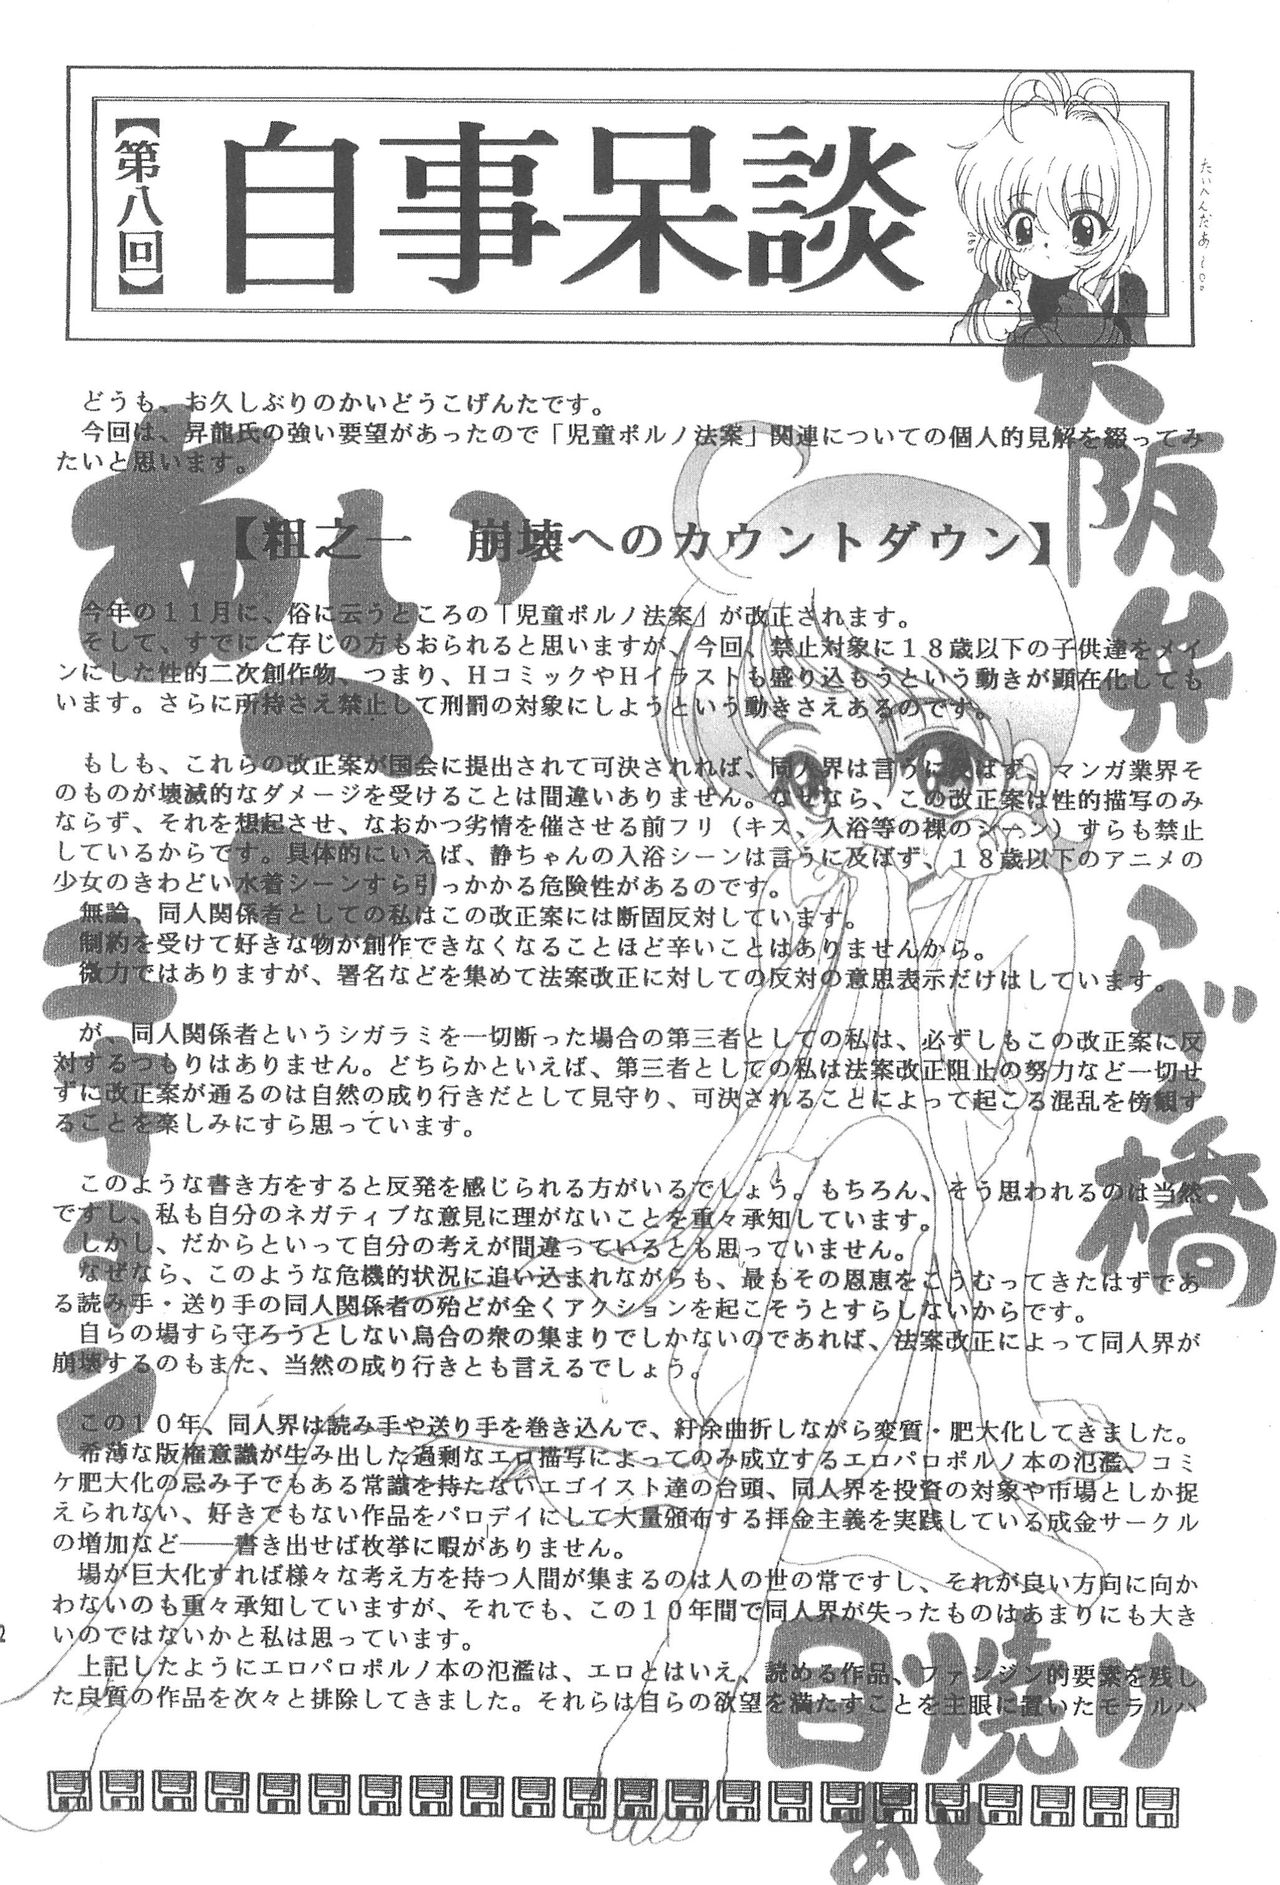 【第八回】
自事呆談
たぃへんだぁ～。
どうも、お久しぶりのかいどうこげんたです。
今回は、昇龍氏の強い要望があったので「児童ポルノ法案」関連についての個人的見解を綴ってみ
たいと思います。
【粗之一　崩壊へのカウントダウン】
今年の１１月に、俗に云うところの「児童ポルノ法案」が改正されます。
そして、すでにご存じの方もおられると思いますが、今回、禁止対象に１８歳以下の子供達をメイ
ンにした性的二次創作物、つまり、ＨコミックやＨイラストも盛り込もうという動きが顕在化しても
います。さらに所持さえ禁止して刑罰の対象にしようという動きさえあるのです。
もしも、これらの改正案が国会に提出されて可決されれば、同人界は言うに及ばず、マンガ業界そ
のものが壊滅的なダメージを受けることは間違いありません。なぜなら、この改正案は性的描写のみ
ならず、それを想起させ、なおかつ劣情を催させる前フリ（キス、入浴等の裸のシーン）すらも禁止
しているからです。具体的にいえば、静ちゃんの入浴シーンは言うに及ばず、１８歳以下のアニメの
少女のきわどい水着シーンすら引っかかる危険性があるのです。
無論、同人関係者としての私はこの改正案には断固反対しています。
制約を受けて好きな物が創作できなくなることほど辛いことはありませんから。
微力ではありますが、署名などを集めて法案改正に対しての反対の意思表示だけはしています。
が、同人関係者というシガラミを一切断った場合の第三者としての私は、必ずしもこの改正案に反
対するつもりはありません。どちらかといえば、第三者としての私は法案改正阻止の努力など一切せ
ずに改正案が通るのは自然の成り行きだとして見守り、可決されることによって起こる混乱を傍観す
ることを楽しみにすら思っています。
このような書き方をすると反発を感じられる方がいるでしょう。もちろん、そう思われるのは当然
ですし、私も自分のネガティブな意見に理がないことを重々承知しています。
しかし、だからといって自分の考えが間違っているとも思っていません。
なぜなら、このような危機的状況に追い込まれながらも、最もその恩恵をこうむってきたはずであ
る読み手・送り手の同人関係者の殆どが全くアクションを起こそうとすらしないからです。
自らの場すら守ろうとしない烏合の衆の集まりでしかないのであれば、法案改正によって同人界が
崩壊するのもまた、当然の成り行きとも言えるでしょう。
この１０年、同人界は読み手や送り手を巻き込んで、紆余曲折しながら変質・肥大化してきました。
希薄な版権意識が生み出した過剰なエロ描写によってのみ成立するエロパロポルノ本の氾濫、コミ
ケ肥大化の忌み子でもある常識を持たないエゴイスト達の台頭、同人界を投資の対象や市場としか捉
えられない、好きでもない作品をパロデイにして大量頒布する拝金主義を実践している成金サークル
の増加など――書き出せば枚挙に暇がありません。
場が巨大化すれば様々な考え方を持つ人間が集まるのは人の世の常ですし、それが良い方向に向か
わないのも重々承知していますが、それでも、この１０年間で同人界が失ったものはあまりにも大き
いのではないかと私は思っています。
上記したようにエロパロポルノ本の氾濫は、エロとはいえ、読める作品、ファンジン的要素を残し
た良質の作品を次々と排除してきました。それらは自らの欲望を満たすことを主眼に置いたモラルハ
大阪弁
橋
日焼け
あと
2